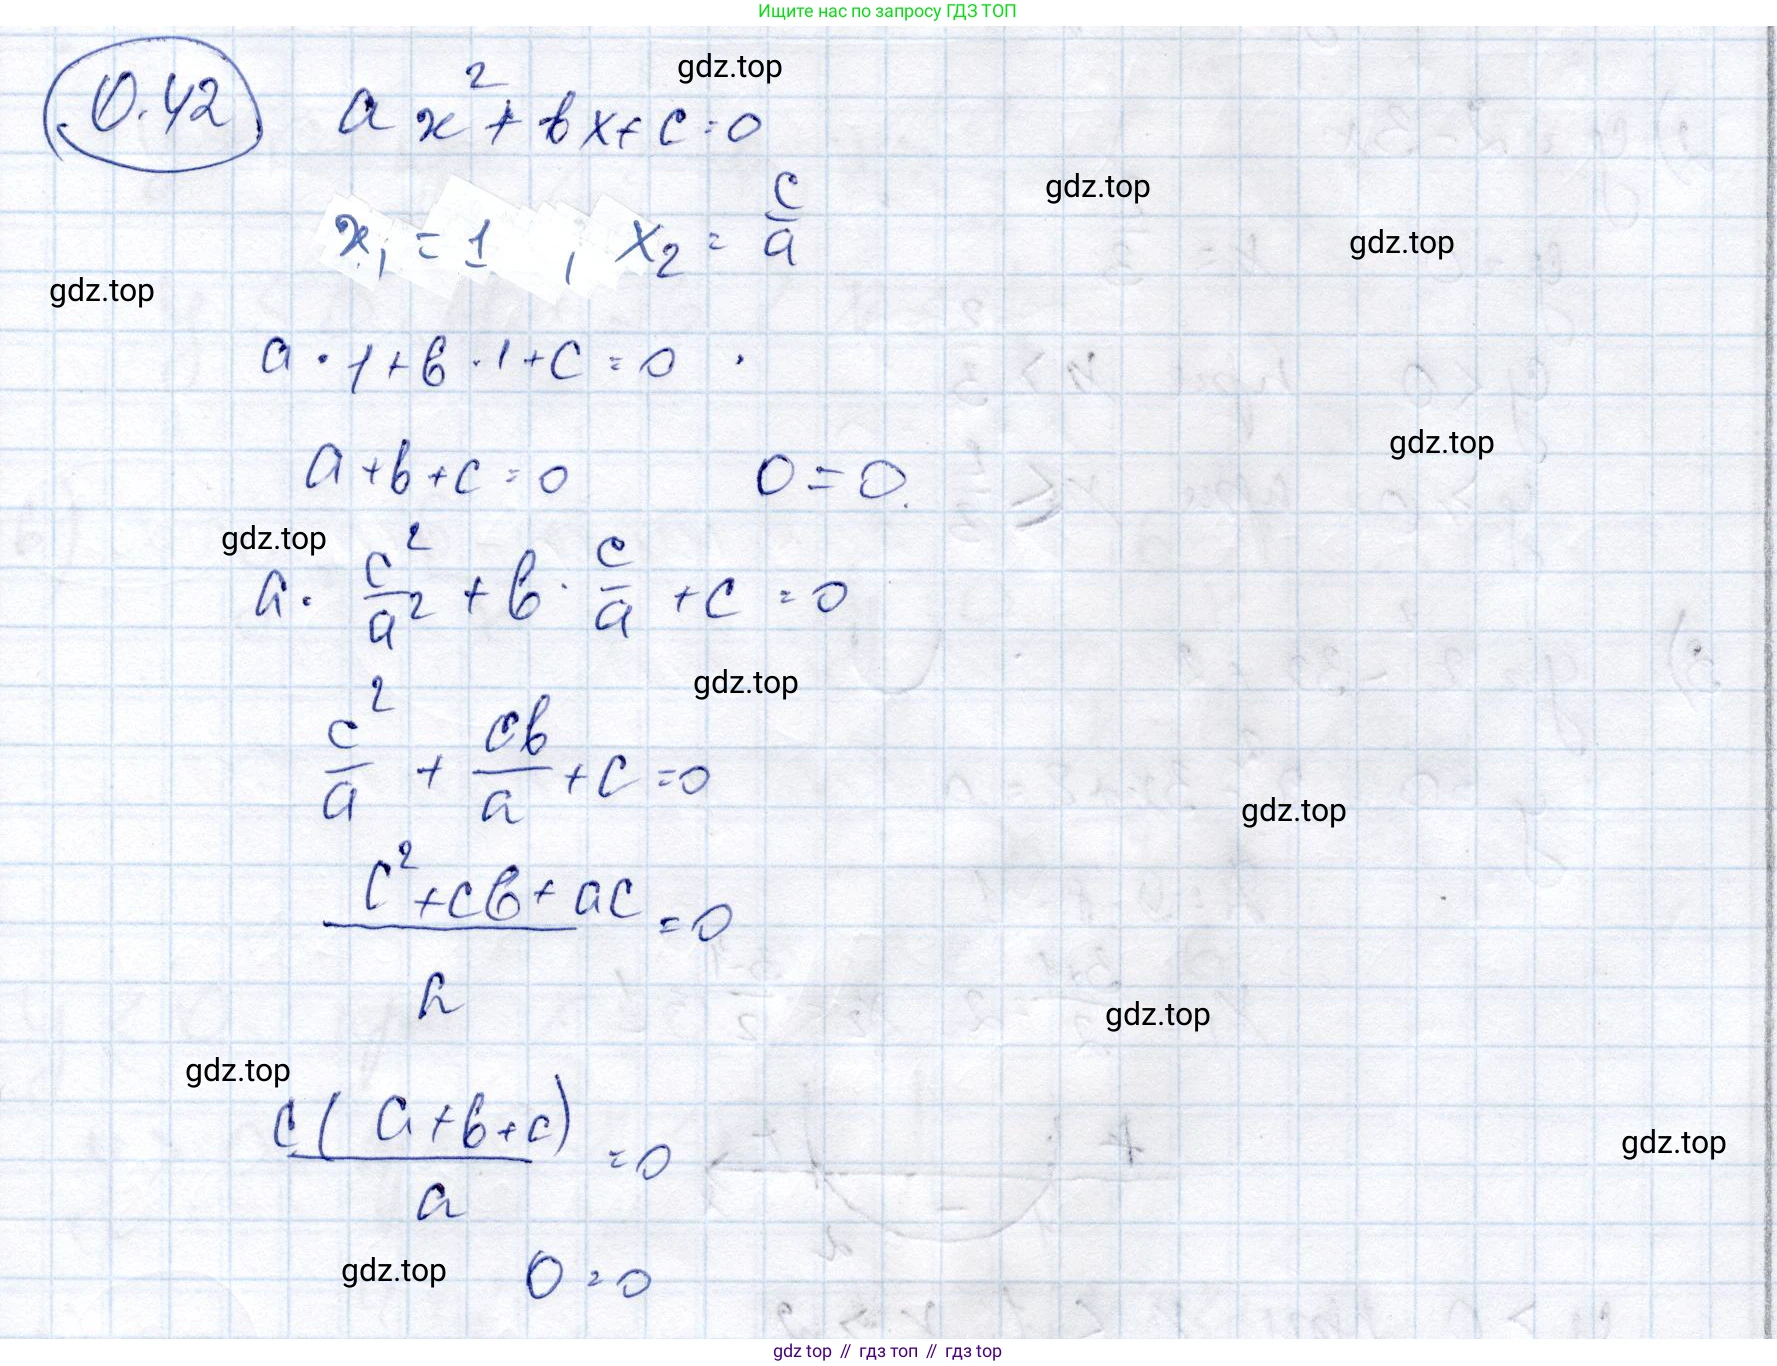 Ищите нас по запросу ГДЗ ТОП
0.42 ax² + bx + c = 0
gdz.top
x₁ = 1, x₂ = c/a
gdz.top
gdz.top
gdz.top
a · 1 + b · 1 + c = 0
a + b + c = 0 0 = 0.
gdz.top
gdz.top
a · c²/a² + b · c/a + c = 0
gdz.top
c²/a + cb/a + c = 0
gdz.top
(c² + cb + ac)/a = 0
gdz.top
gdz.top
c(a + b + c)/a = 0
gdz.top
gdz.top
0 = 0
gdz top // гдз топ // гдз top